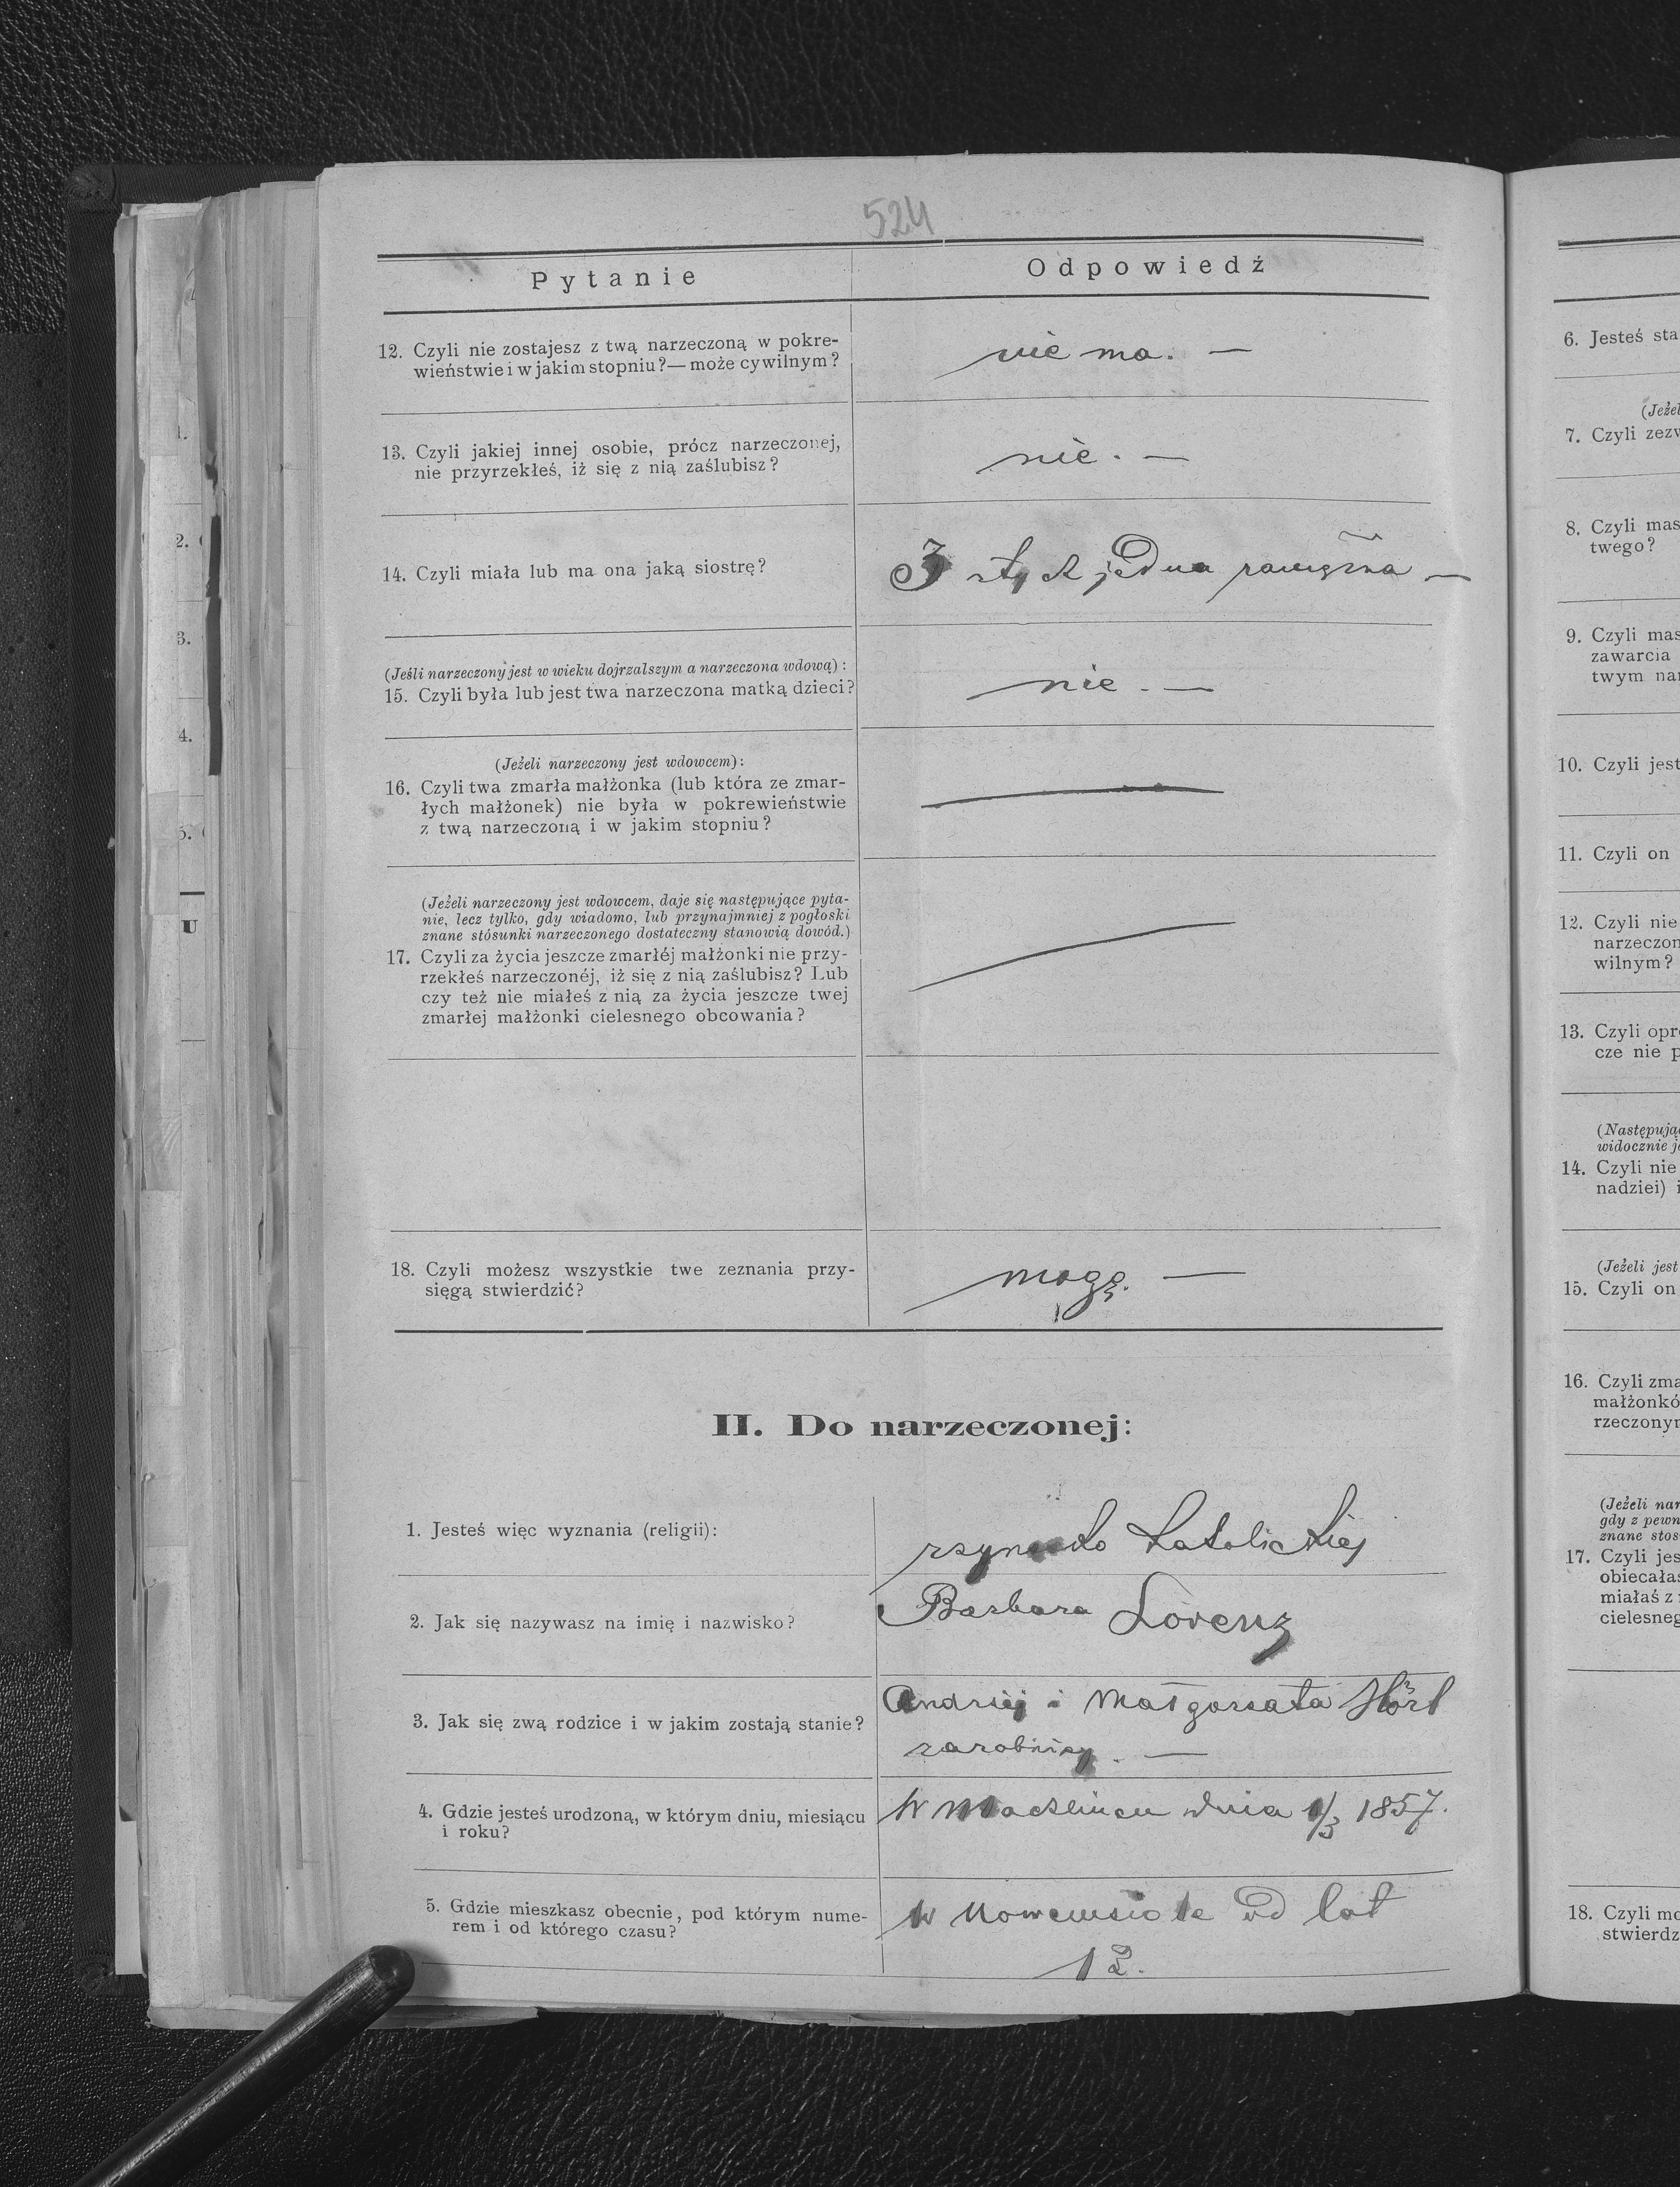 524
Pytanie
Odpowiedź
12. Czyli nie zostajesz z twą narzeczoną w pokre-
wieństwie i w jakim stopniu?— może cywilnym?
nie ma. —
13. Czyli jakiej innej osobie, prócz narzeczonej,
nie przyrzekłeś, iż się z nią zaślubisz?
nie. —
14. Czyli miała lub ma ona jaką siostrę?
3 jedna —
(Jeśli narzeczony jest w wieku dojrzalszym a narzeczona wdową):
15. Czyli była lub jest twa narzeczona matką dzieci?
nie. —
(Jeżeli narzeczony jest wdowcem):
16. Czyli twa zmarła małżonka (lub która ze zmar-
łych małżonek) nie była w pokrewieństwie
z twą narzeczoną i w jakim stopniu?
(Jeżeli narzeczony jest wdowcem, daje się następujące pyta-
nie, lecz tylko, gdy wiadomo, lub przynajmniej z pogłoski
znane stósunki narzeczonego dostateczny stanowią dowód.)
17. Czyli za życia jeszcze zmarłéj małżonki nie przy-
rzekłeś narzeczonéj, iż się z nią zaślubisz? Lub
czy też nie miałeś z nią za życia jeszcze twej
zmarłej małżonki cielesnego obcowania?
18. Czyli możesz wszystkie twe zeznania przy-
sięgą stwierdzić?
mogę. —
II. Do narzeczonej:
1. Jesteś więc wyznania (religii):
rzymsko katolickiej
2. Jak się nazywasz na imię i nazwisko?
Barbara Lorenz
3. Jak się zwą rodzice i w jakim zostają stanie?
Andrzej i Małgorzata Hörl
zarobnicy. —
4. Gdzie jesteś urodzoną, w którym dniu, miesiącu
i roku?
W dnia 1/3 1857.
5. Gdzie mieszkasz obecnie, pod którym nume-
rem i od którego czasu?
W od lat
12.
6. Jesteś sta
(Jeżel
7. Czyli zezw
8. Czyli mas
twego?
9. Czyli mas
zawarcia
twym nar
10. Czyli jest
11. Czyli on
12. Czyli nie
narzeczon
wilnym?
13. Czyli opró
cze nie p
(Następują
widocznie je
14. Czyli nie
nadziei) i
(Jeżeli jest
15. Czyli on
16. Czyli zma
małżonkó
rzeczonym
(Jeżeli nar
gdy z pewn
znane stos
17. Czyli jes
obiecałaś
miałaś z
cielesneg
18. Czyli mo
stwierdz
1.
2.
3.
4.
5.
U